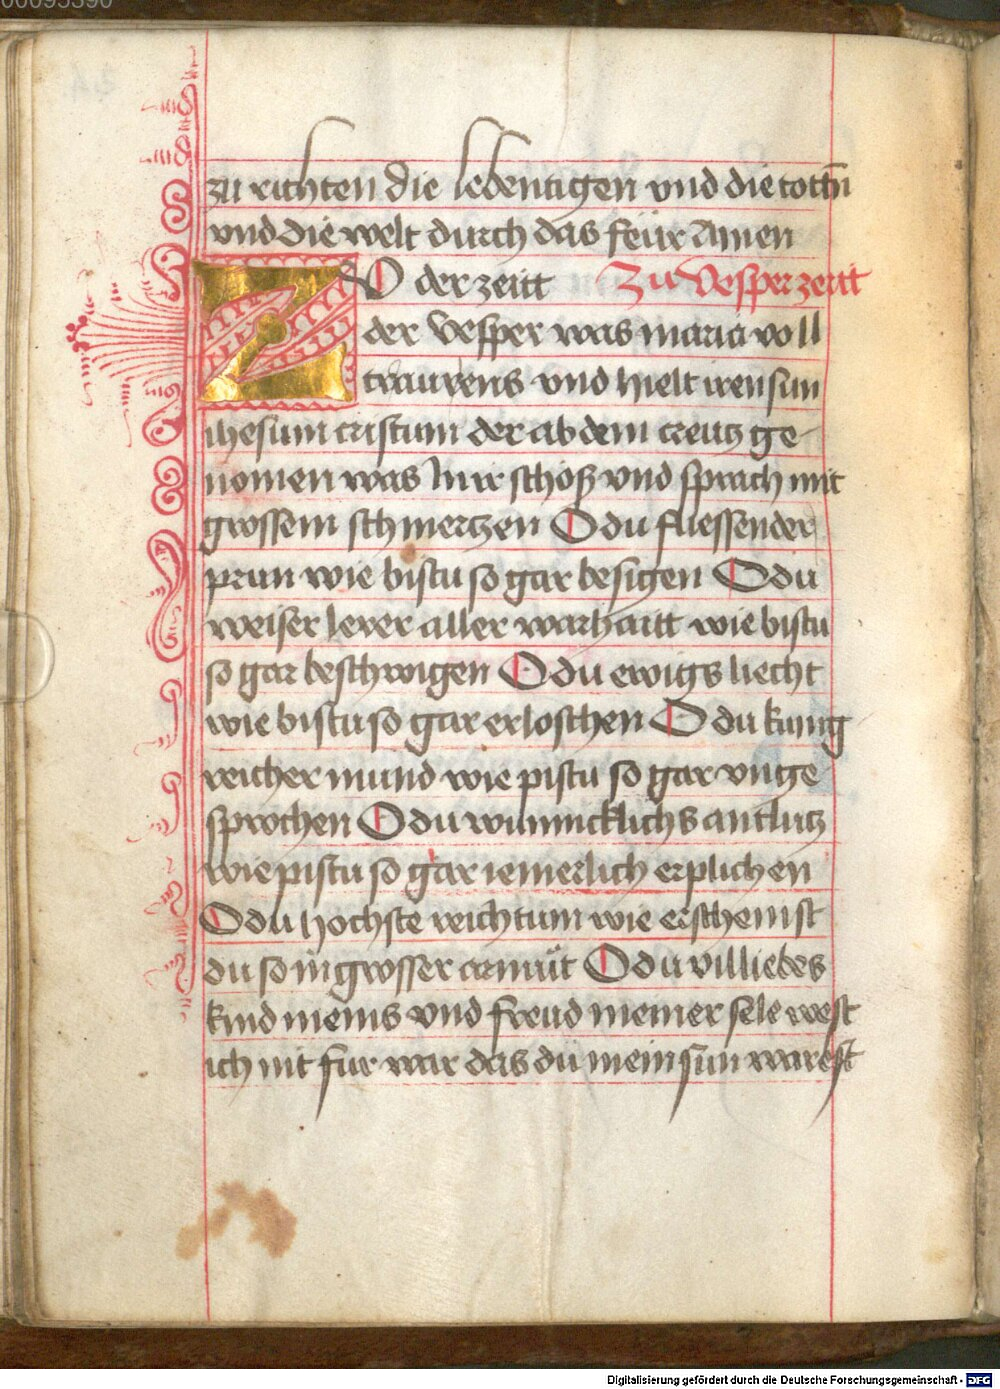 00095390
zu richten die lebentigen vnd die tottn̄
vnd die welt durch das feür Amen
ZV der zeitt Zu Vesperzeitt
der Vesper was maria voll
traurens vnd hielt iren sun
ihesum cristum der ab dem creutz ge-
nomen was In ir schoß vnd sprach mit
grossem schmertzen O du fliessender
prun wie bistu so gar besigen O du
weiser lerer aller warhaitt wie bistu
so gar beschwigen O du ewigs liecht
wie bistu so gar erloschen O du kunig
reicher mund wie pistu so gar vnge
sprochen O du wunnicklichs antlutz
wie pistu so gar iemerlich erplichen
O du hochste reichtum wie erscheinst
du so in grosser armut O du vil liebes
kind meins vnd freud meiner sele west
ich nit fur war das du mein sun warest
Digitalisierung gefördert durch die Deutsche Forschungsgemeinschaft - DFG